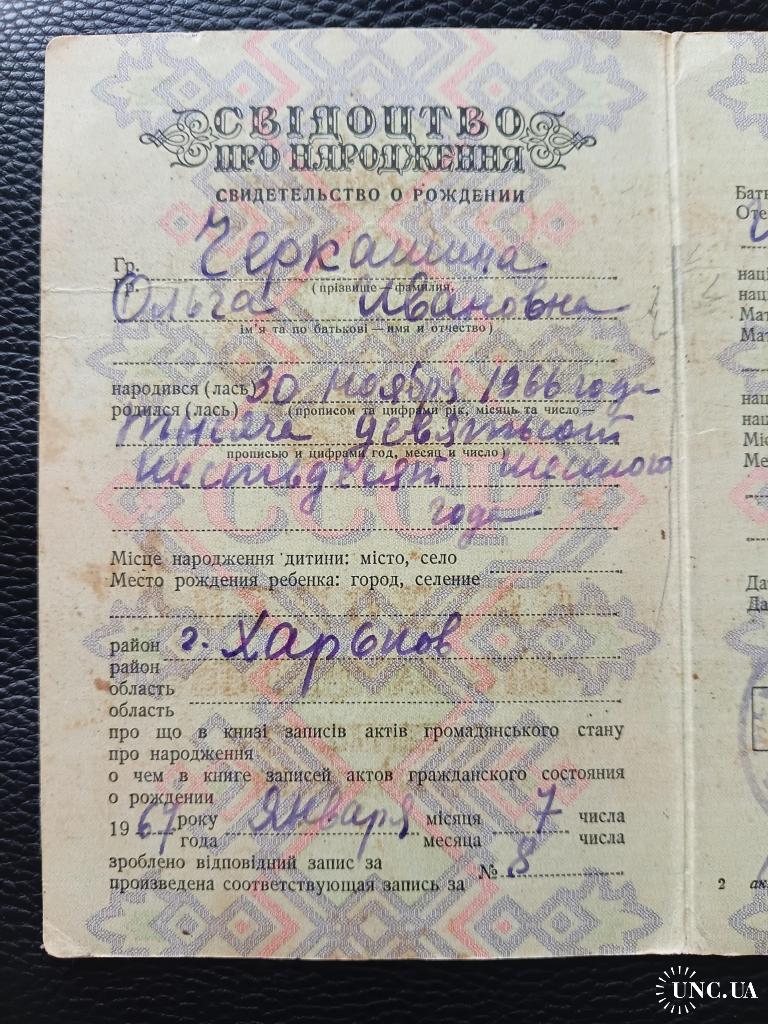 СВІДОЦТВО
ПРО НАРОДЖЕННЯ
СВИДЕТЕЛЬСТВО О РОЖДЕНИИ
Гр. Черкашина
Гр. (прізвище — фамилия,
Ольга Ивановна
ім'я та по батькові — имя и отчество)
народився (лась) 30 ноября 1966 года
родился (лась) (прописом та цифрами рік, місяць та число —
тысяча девятьсот
прописью и цифрами год, месяц и число)
шестьдесят шестого
года
СССР
Місце народження дитини: місто, село
Место рождения ребенка: город, селение
район г. Харьков
район
область
область
про що в книзі записів актів громадянського стану
про народження
о чем в книге записей актов гражданского состояния
о рождении
1967 року января місяця 7 числа
года месяца числа
зроблено відповідний запис за
произведена соответствующая запись за № 8
Бать
Оте
наці
наці
Мат
Мат
нац
нац
Міс
Ме
Да
Да
2 ак
UNC.UA